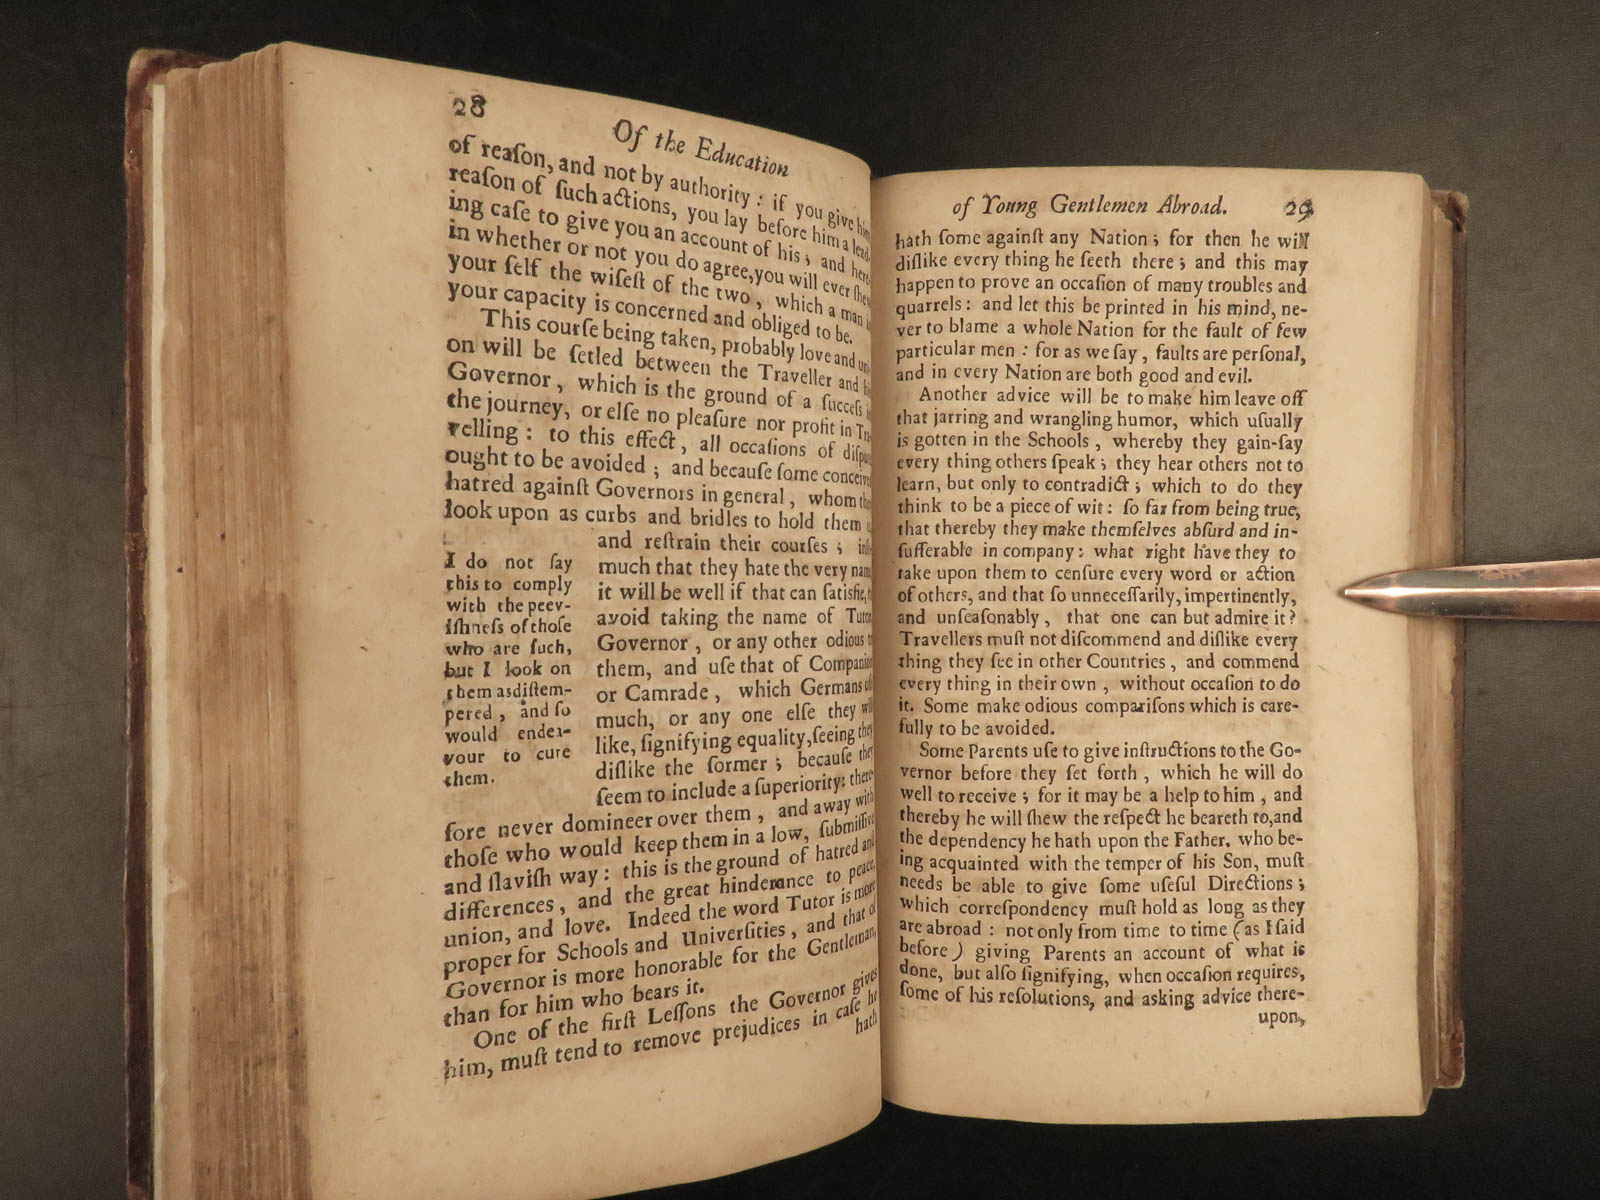 28
Of the Education
of reaſon, and not by authority : if you give him
reaſon of ſuch actions, you lay before him a lead-
ing caſe to give you an account of his ; and here-
in whether or not you do agree, you will ever ſhew
your ſelf the wiſeſt of the two , which a man
your capacity is concerned and obliged to be.
This courſe being taken, probably love and uni-
on will be ſetled between the Traveller and
Governor , which is the ground of a ſucceſs
the journey, or elſe no pleaſure nor profit in Tra-
velling : to this effect , all occaſions of
ought to be avoided ; and becauſe ſome conceive
hatred againſt Governors in general , whom
look upon as curbs and bridles to hold them
and reſtrain their courſes ;
much that they hate the very name
it will be well if that can ſatisfie,
avoid taking the name of Tutor
Governor , or any other odious
them, and uſe that of Companion
or Camrade , which Germans
much, or any one elſe they
like, ſignifying equality, ſeeing they
diſlike the former ; becauſe they
ſeem to include a ſuperiority: there-
I do not ſay
this to comply
with the peev-
iſhneſs of thoſe
who are ſuch,
but I look on
them as diſtem-
pered , and ſo
would endea-
vour to cure
them.
fore never domineer over them , and away with
thoſe who would keep them in a low, ſubmiſſive
and ſlaviſh way : this is the ground of hatred and
differences , and the great hinderance to peace,
union, and love. Indeed the word Tutor is more
proper for Schools and Univerſities , and that of
Governor is more honorable for the Gentleman,
than for him who bears it.
One of the firſt Leſſons the Governor gives
him, muſt tend to remove prejudices in caſe he
hath
of Young Gentlemen Abroad.
29
hath ſome againſt any Nation ; for then he will
diſlike every thing he ſeeth there ; and this may
happen to prove an occaſion of many troubles and
quarrels : and let this be printed in his mind, ne-
ver to blame a whole Nation for the fault of few
particular men : for as we ſay , faults are perſonal,
and in every Nation are both good and evil.
Another advice will be to make him leave off
that jarring and wrangling humor, which uſually
is gotten in the Schools , whereby they gain-ſay
every thing others ſpeak ; they hear others not to
learn, but only to contradict ; which to do they
think to be a piece of wit : ſo far from being true,
that thereby they make themſelves abſurd and in-
ſufferable in company : what right have they to
take upon them to cenſure every word or action
of others, and that ſo unneceſſarily, impertinently,
and unſeaſonably , that one can but admire it?
Travellers muſt not diſcommend and diſlike every
thing they ſee in other Countries , and commend
every thing in their own , without occaſion to do
it. Some make odious compariſons which is care-
fully to be avoided.
Some Parents uſe to give inſtructions to the Go-
vernor before they ſet forth , which he will do
well to receive ; for it may be a help to him , and
thereby he will ſhew the reſpect he beareth to, and
the dependency he hath upon the Father, who be-
ing acquainted with the temper of his Son, muſt
needs be able to give ſome uſeful Directions ;
which correſpondency muſt hold as long as they
are abroad : not only from time to time ( as I ſaid
before ) giving Parents an account of what is
done, but alſo ſignifying, when occaſion requires,
ſome of his reſolutions, and asking advice there-
upon,